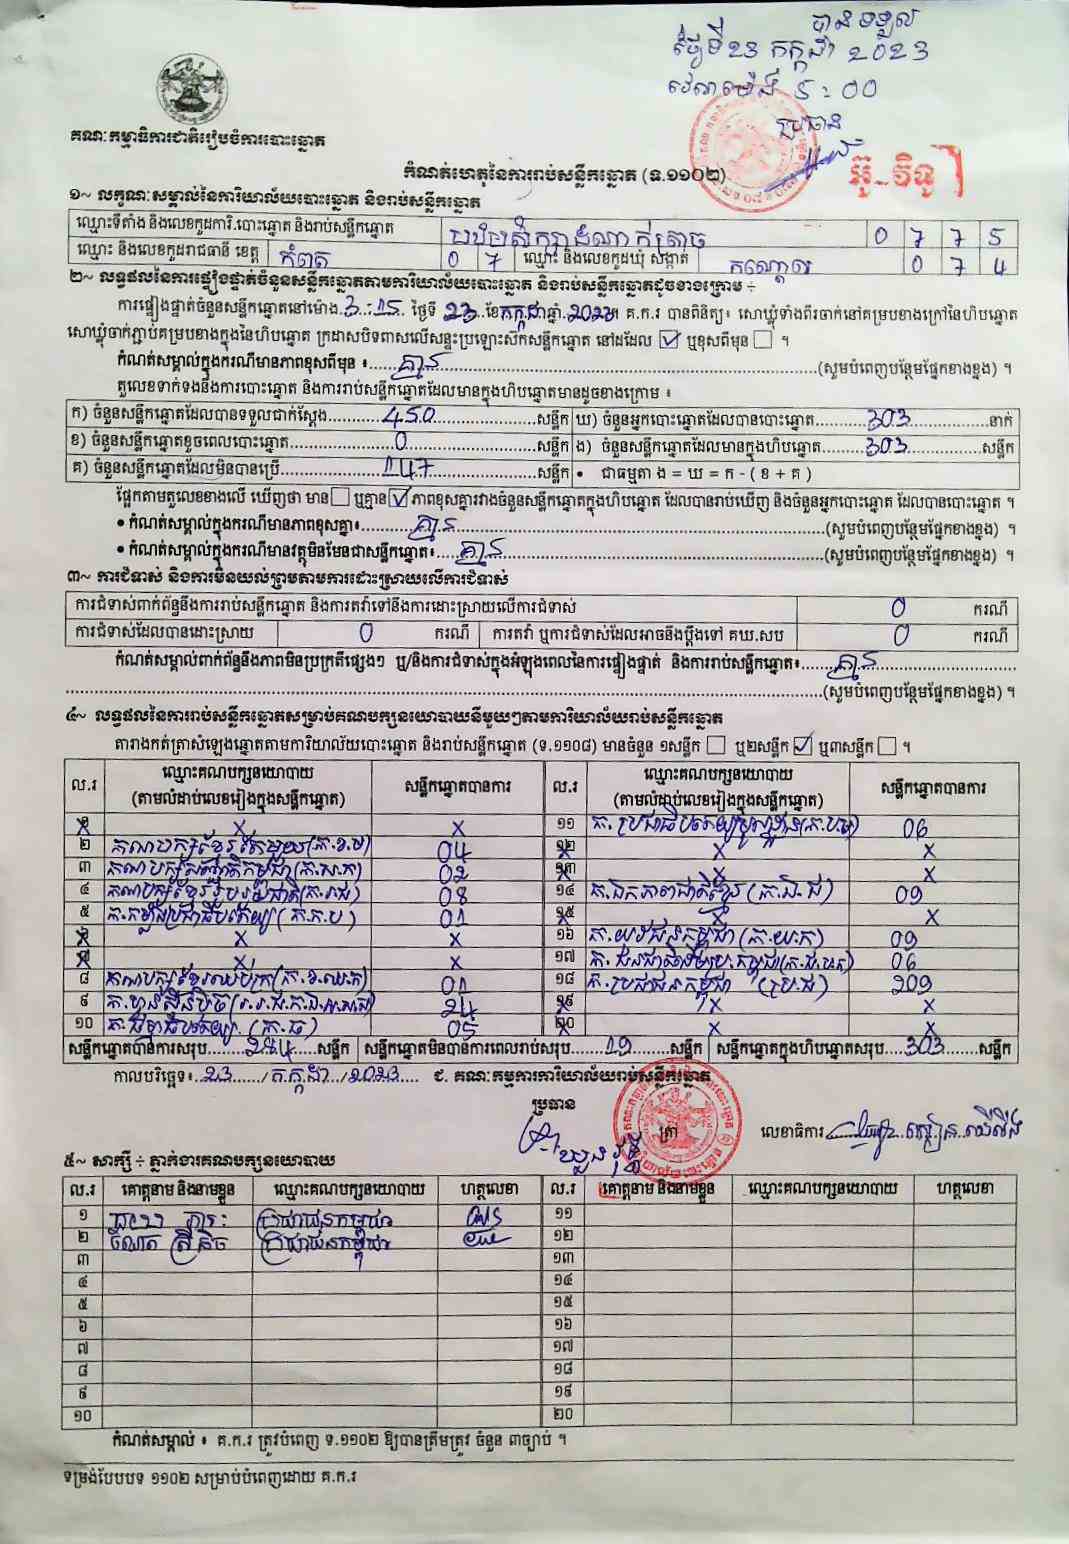 បានទទួល
ថ្ងៃទី 23 កក្កដា 2023
វេលាម៉ោង 5:00
ប្រធាន
គណៈកម្មាធិការជាតិរៀបចំការបោះឆ្នោត
កំណត់ហេតុនៃការរាប់សន្លឹកឆ្នោត (ទ.១១០២)
១~ លក្ខណៈសម្គាល់នៃការិយាល័យបោះឆ្នោត និងរាប់សន្លឹកឆ្នោត
ឈ្មោះទីតាំង និងលេខកូដការិ.បោះឆ្នោត និងរាប់សន្លឹកឆ្នោត 0 7 7 5
ឈ្មោះ និងលេខកូដរាជធានី ខេត្ត កំពត 0 7 ឈ្មោះ និងលេខកូដឃុំ សង្កាត់ 0 7 4
២~ លទ្ធផលនៃការផ្ទៀងផ្ទាត់ចំនួនសន្លឹកឆ្នោតតាមការិយាល័យបោះឆ្នោត និងរាប់សន្លឹកឆ្នោតដូចខាងក្រោម ÷
ការផ្ទៀងផ្ទាត់ចំនួនសន្លឹកឆ្នោតនៅម៉ោង 3:15 ថ្ងៃទី 23 ខែ កក្កដា ឆ្នាំ 2023 គ.ក.រ បានពិនិត្យ៖ សោឃ្លុំទាំងពីរចាក់នៅគម្របខាងក្រៅនៃហិប
សោឃ្លុំចាក់ភ្ជាប់គម្របខាងក្នុងនៃហិបឆ្នោត ក្រដាសបិទពាសលើសន្ទះប្រឡោះស៊កសន្លឹកឆ្នោត នៅដដែល ☑ ឬខុសពីមុន ☐ ។
កំណត់សម្គាល់ក្នុងករណីមានភាពខុសពីមុន ៖ គ្មាន (សូមបំពេញបន្ថែមផ្នែកខាងខ្នង) ។
តួលេខទាក់ទងនឹងការបោះឆ្នោត និងការរាប់សន្លឹកឆ្នោតដែលមានក្នុងហិបឆ្នោតមានដូចខាងក្រោម ៖
ក) ចំនួនសន្លឹកឆ្នោតដែលបានទទួលជាក់ស្តែង 450 សន្លឹក ឃ) ចំនួនអ្នកបោះឆ្នោតដែលបានបោះឆ្នោត 303 នាក់
ខ) ចំនួនសន្លឹកឆ្នោតខូចពេលបោះឆ្នោត 0 សន្លឹក ង) ចំនួនសន្លឹកឆ្នោតដែលមានក្នុងហិបឆ្នោត 303 សន្លឹក
គ) ចំនួនសន្លឹកឆ្នោតដែលមិនបានប្រើ 147 សន្លឹក • ជាធម្មតា ង = ឃ = ក - ( ខ + គ )
ផ្អែកតាមតួលេខខាងលើ ឃើញថា មាន ☐ ឬគ្មាន ☑ ភាពខុសគ្នារវាងចំនួនសន្លឹកឆ្នោតក្នុងហិបឆ្នោត ដែលបានរាប់ឃើញ និងចំនួនអ្នកបោះឆ្នោត ដែលបានបោះឆ្នោត ។
• កំណត់សម្គាល់ក្នុងករណីមានភាពខុសគ្នា៖ គ្មាន (សូមបំពេញបន្ថែមផ្នែកខាងខ្នង) ។
• កំណត់សម្គាល់ក្នុងករណីមានវត្ថុមិនមែនជាសន្លឹកឆ្នោត៖ គ្មាន (សូមបំពេញបន្ថែមផ្នែកខាងខ្នង) ។
៣~ ការជំទាស់ និងការមិនយល់ព្រមតាមការដោះស្រាយលើការជំទាស់
ការជំទាស់ពាក់ព័ន្ធនឹងការរាប់សន្លឹកឆ្នោត និងការតវ៉ាទៅនឹងការដោះស្រាយលើការជំទាស់ 0 ករណី
ការជំទាស់ដែលបានដោះស្រាយ 0 ករណី ការតវ៉ា ឬការជំទាស់ដែលអាចនឹងប្តឹងទៅ គឃ.សប 0 ករណី
កំណត់សម្គាល់ពាក់ព័ន្ធនឹងភាពមិនប្រក្រតីផ្សេងៗ ឬ/និងការជំទាស់ក្នុងអំឡុងពេលនៃការផ្ទៀងផ្ទាត់ និងការរាប់សន្លឹកឆ្នោត៖ គ្មាន
(សូមបំពេញបន្ថែមផ្នែកខាងខ្នង) ។
៤~ លទ្ធផលនៃការរាប់សន្លឹកឆ្នោតសម្រាប់គណបក្សនយោបាយនីមួយៗតាមការិយាល័យរាប់សន្លឹកឆ្នោត
តារាងកត់ត្រាសំឡេងឆ្នោតតាមការិយាល័យបោះឆ្នោត និងរាប់សន្លឹកឆ្នោត (ទ.១១០៨) មានចំនួន ១សន្លឹក ☐ ឬ២សន្លឹក ☑ ឬ៣សន្លឹក ☐ ។
ល.រ ឈ្មោះគណបក្សនយោបាយ (តាមលំដាប់លេខរៀងក្នុងសន្លឹកឆ្នោត) សន្លឹកឆ្នោតបានការ ល.រ ឈ្មោះគណបក្សនយោបាយ (តាមលំដាប់លេខរៀងក្នុងសន្លឹកឆ្នោត) សន្លឹកឆ្នោតបានការ
១ x x ១១ 06
២ គណបក្សខ្មែរតែមួយ (គ.ខ.ម) 04 ១២ x x
៣ 02 ១៣ x x
៤ គណបក្សខ្មែររួបរួមជាតិ 08 ១៤ គ.ឯកភាពជាតិខ្មែរ (គ.ឯ.ជ) 09
៥ គ.កម្លាំងប្រជាធិបតេយ្យ (គ.ក.ប) 01 ១៥ x x
៦ x x ១៦ គ.យុវជនកម្ពុជា (គ.យ.ក) 09
៧ x x ១៧ 06
៨ 01 ១៨ គ.ប្រជាជនកម្ពុជា 209
៩ គ.ហ្វ៊ុនស៊ិនប៉ិច 24 ១៩ x x
១០ គ.ធម្មាធិបតេយ្យ (គ.ធ) 05 ២០ x x
សន្លឹកឆ្នោតបានការសរុប 284 សន្លឹក សន្លឹកឆ្នោតមិនបានការពេលរាប់សរុប 19 សន្លឹក សន្លឹកឆ្នោតក្នុងហិបឆ្នោតសរុប 303 សន្លឹក
កាលបរិច្ឆេទ៖ 23 / កក្កដា / 2023 ជ. គណៈកម្មការការិយាល័យរាប់សន្លឹកឆ្នោត
ប្រធាន ត្រា លេខាធិការ
៥~ សាក្សី ÷ ភ្នាក់ងារគណបក្សនយោបាយ
ល.រ គោត្តនាម និងនាមខ្លួន ឈ្មោះគណបក្សនយោបាយ ហត្ថលេខា ល.រ គោត្តនាម និងនាមខ្លួន ឈ្មោះគណបក្សនយោបាយ ហត្ថលេខា
១ ប្រជាជនកម្ពុជា ១១
២ ប្រជាជនកម្ពុជា ១២
៣ ១៣
៤ ១៤
៥ ១៥
៦ ១៦
៧ ១៧
៨ ១៨
៩ ១៩
១០ ២០
កំណត់សម្គាល់ ៖ គ.ក.រ ត្រូវបំពេញ ទ.១១០២ ឱ្យបានត្រឹមត្រូវ ចំនួន ៣ច្បាប់ ។
ទម្រង់បែបបទ ១១០២ សម្រាប់បំពេញដោយ គ.ក.រ